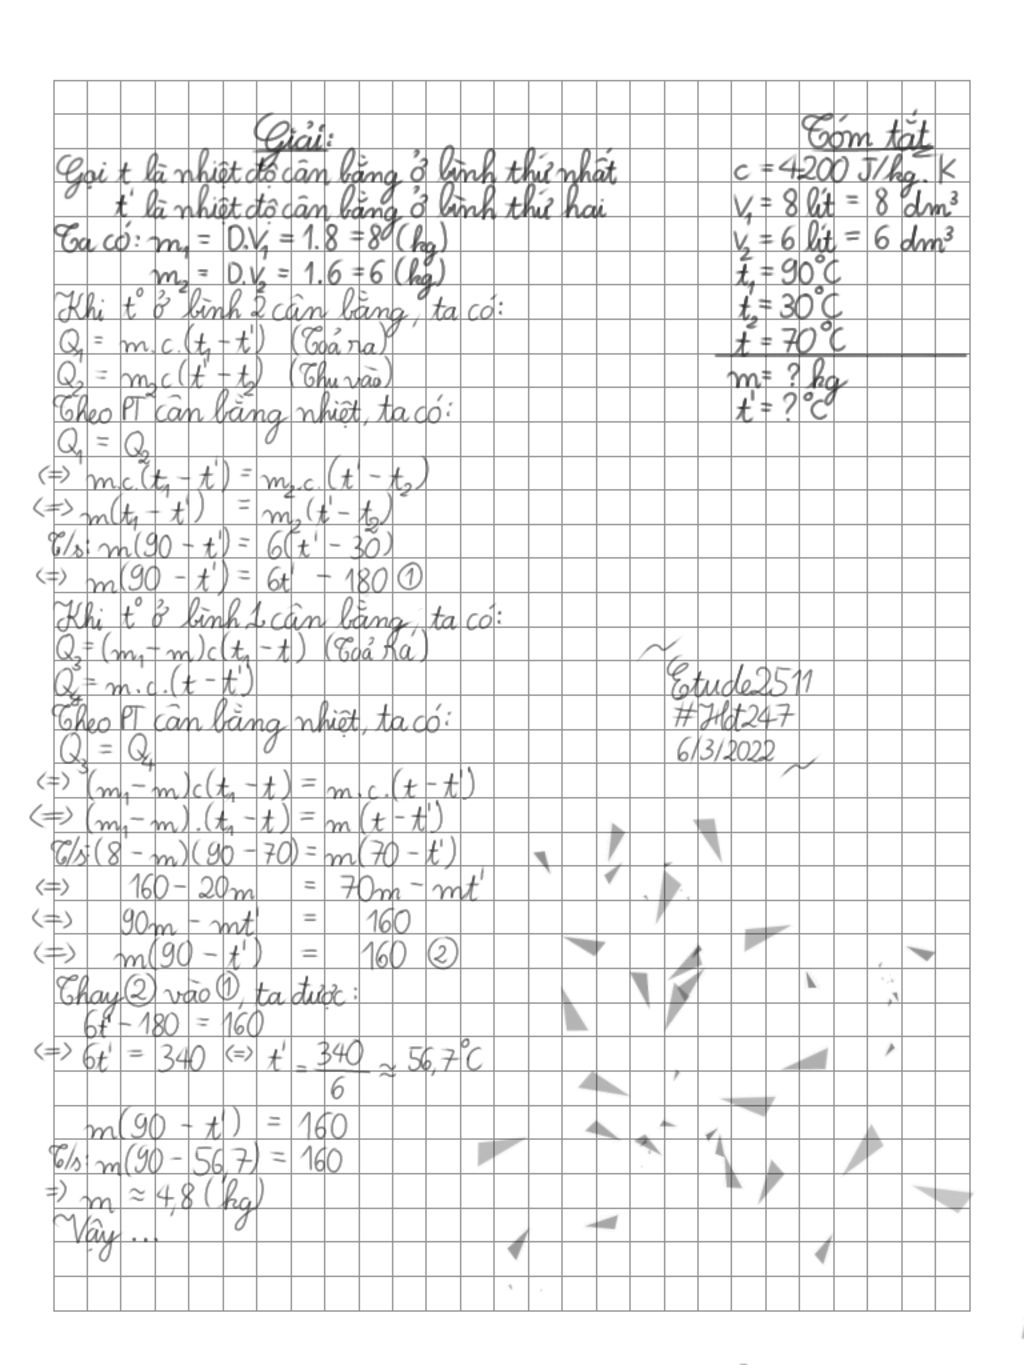 Giải:
Gọi t là nhiệt độ cân bằng ở bình thứ nhất
t' là nhiệt độ cân bằng ở bình thứ hai
Ta có: m₁ = D.V₁ = 1.8 = 8 (kg)
m₂ = D.V₂ = 1.6 = 6 (kg)
Khi t° ở bình 2 cân bằng, ta có:
Q₁ = m.c.(t₁ - t') (Toả ra)
Q₂ = m₂c(t' - t₂) (Thu vào)
Theo PT cân bằng nhiệt, ta có:
Q₁ = Q₂
<=> m.c.(t₁ - t') = m₂.c.(t' - t₂)
<=> m(t₁ - t') = m₂(t' - t₂)
T/s: m(90 - t') = 6(t' - 30)
<=> m(90 - t') = 6t' - 180 ①
Khi t° ở bình 1 cân bằng, ta có:
Q₃ = (m₁ - m)c(t₁ - t) (Toả Ra)
Q₄ = m.c.(t - t')
Theo PT cân bằng nhiệt, ta có:
Q₃ = Q₄
<=> (m₁ - m)c(t₁ - t) = m.c.(t - t')
<=> (m₁ - m).(t₁ - t) = m(t - t')
T/s: (8 - m)(90 - 70) = m(70 - t')
<=> 160 - 20m = 70m - mt'
<=> 90m - mt' = 160
<=> m(90 - t') = 160 ②
Thay ② vào ①, ta được:
6t' - 180 = 160
<=> 6t' = 340 <=> t' = 340/6 ≈ 56,7°C
m(90 - t') = 160
T/s: m(90 - 56,7) = 160
=> m ≈ 4,8 (kg)
Vậy ...
Tóm tắt
c = 4200 J/kg.K
V₁ = 8 lít = 8 dm³
V₂ = 6 lít = 6 dm³
t₁ = 90°C
t₂ = 30°C
t = 70°C
m = ? kg
t' = ? °C
~
Etude2511
#Hdt247
6/3/2022
~